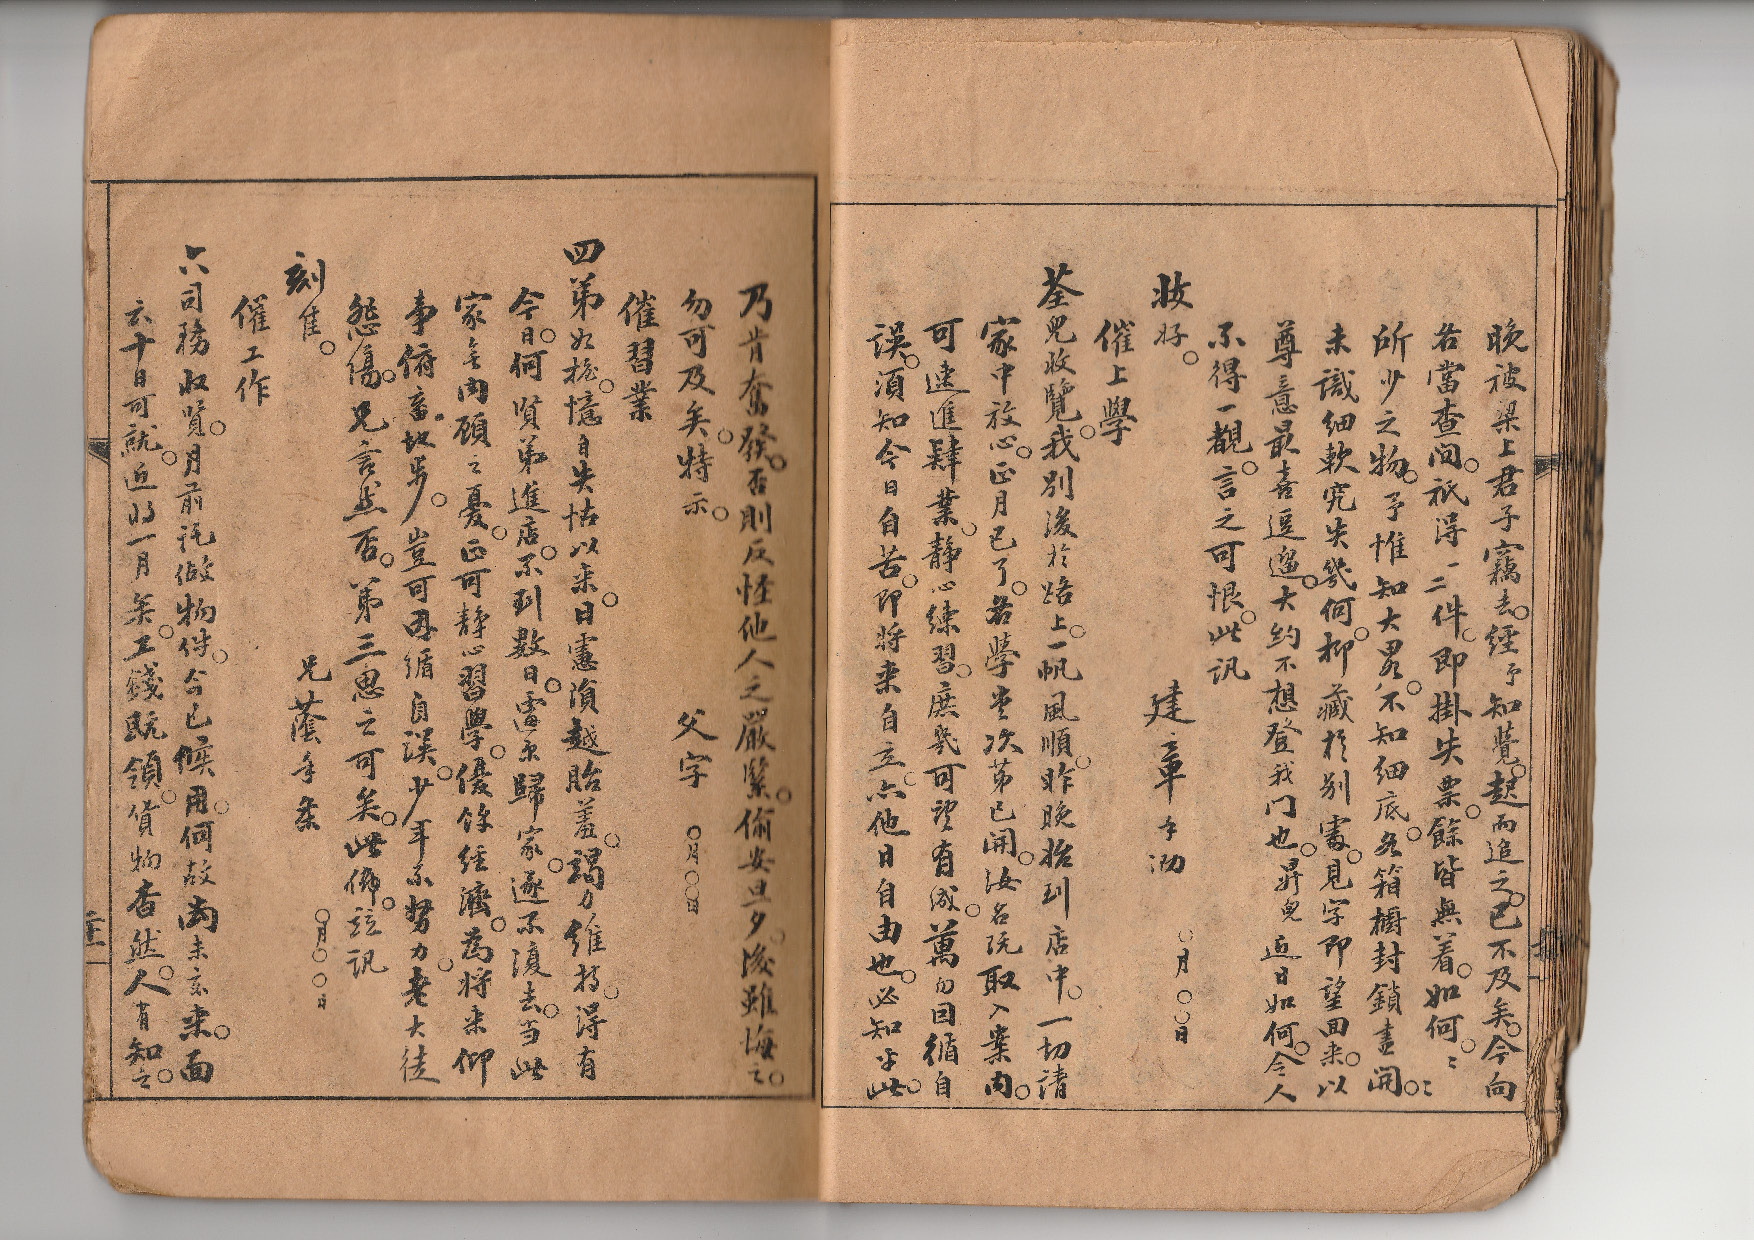 晚被梁上君子竊去。經予知覺。起而追之。已不及矣。今向
各當查問。祇得一二件。即掛失票。餘皆無着。如何。〻
所少之物。予惟知大畧。不知細底。各箱櫥封鎖盡開。〻
未識細軟究失幾何。抑藏於別處。見字即望回來。以
尊意最喜逗遛。大約不想登我門也。昇兒近日如何。令人
不得一覩。言之可恨。此訊
妝好。 建章手泐 〇月〇〇日
催上學
荃兒收覽。我別後於路上。一帆風順。昨晚抬到店中。一切請
家中放心。正月已了。各學堂次第已開。汝名阮取入案內。
可速進肄業。靜心練習。庶幾可望有成。萬勿因循自
誤。須知今日自苦。即將來自立。亦他日自由也。必知乎此。
乃肯奮發。否則反怪他人之嚴緊。偷安旦夕。後雖悔之。
勿可及矣。特示。 父字 〇月〇〇日
催習業
四弟如握。憶自失怙以來。日憲須越貽羞。竭力維持。得有
今日。何賢弟進店。不到數日。遽爾歸家。遂不復去。當此
家無內顧之憂。正可靜心習學。優餘經濟。為將來仰
事俯畜地步。豈可再循自誤。少年不努力。老大徒
怨傷。兄言然否。第三思之可矣。此佈。竝訊
刻佳。 兄蔭手奏 〇月〇〇日
催工作
六司務收覽。月前託做物件。今已候用。何故尚未交來。面
云十日可就。近將一月矣。工錢既領。貨物杳然。人有知之。